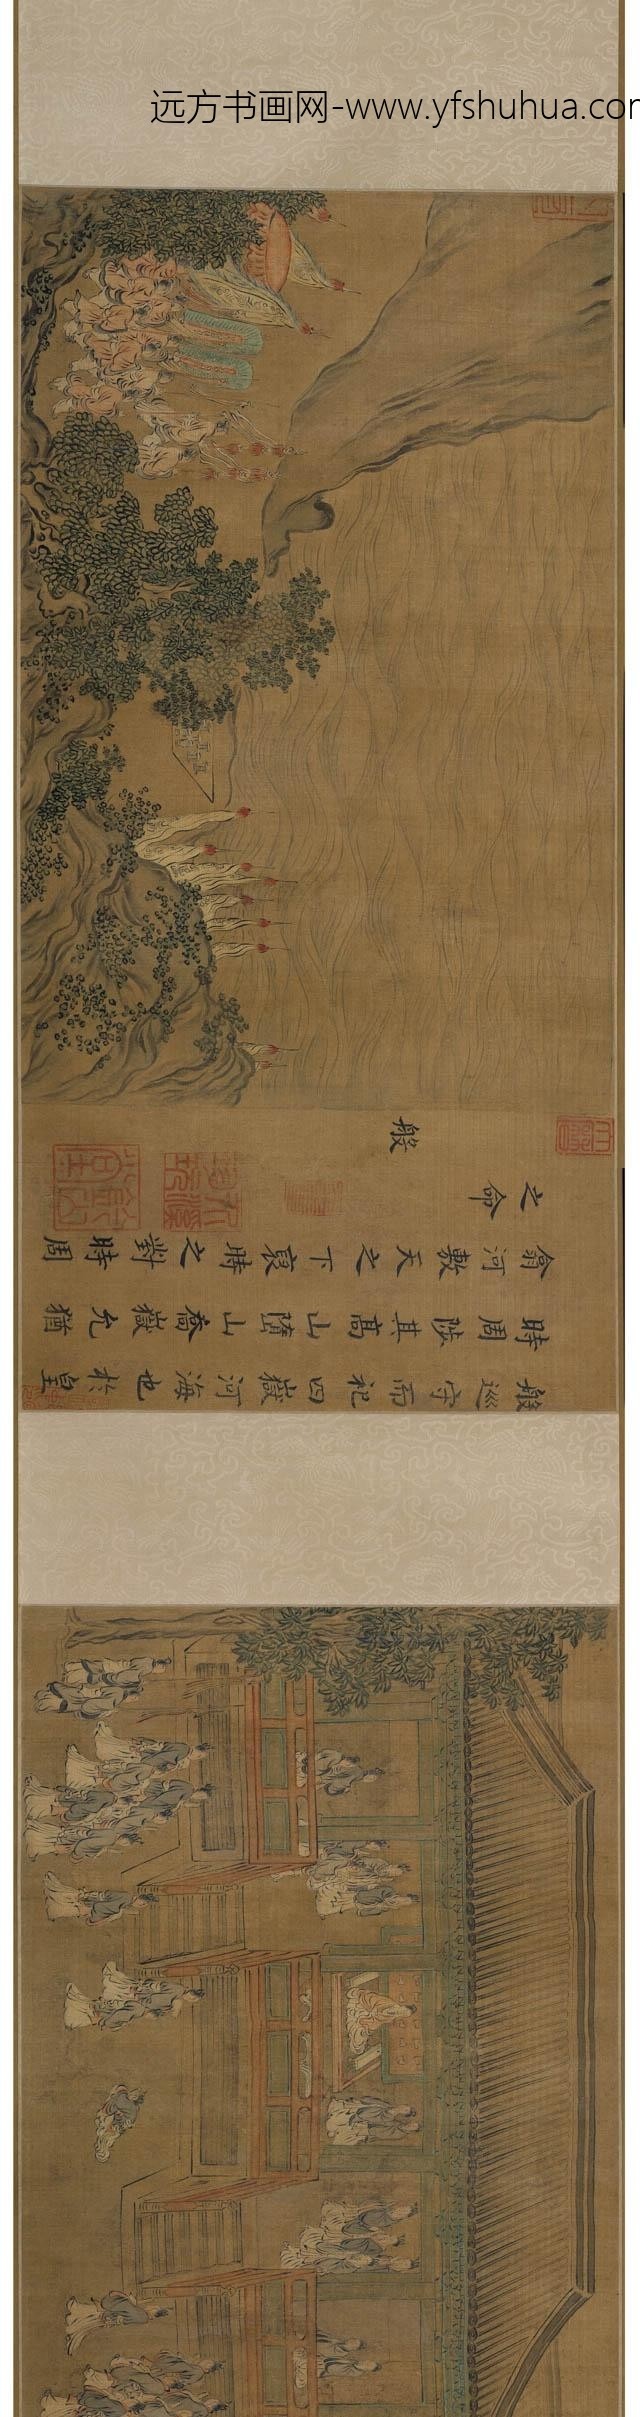 远方书画网-www.yfshuhua.com
般巡守而祀四嶽河海也於皇
時周陟其高山墮山喬嶽允猶
翕河敷天之下裒時之對時周
之命
般